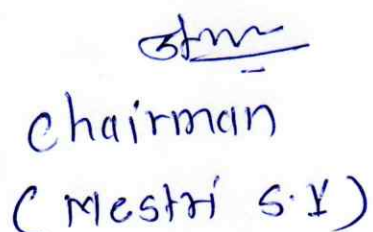 Chairman
(Mestri S.Y)